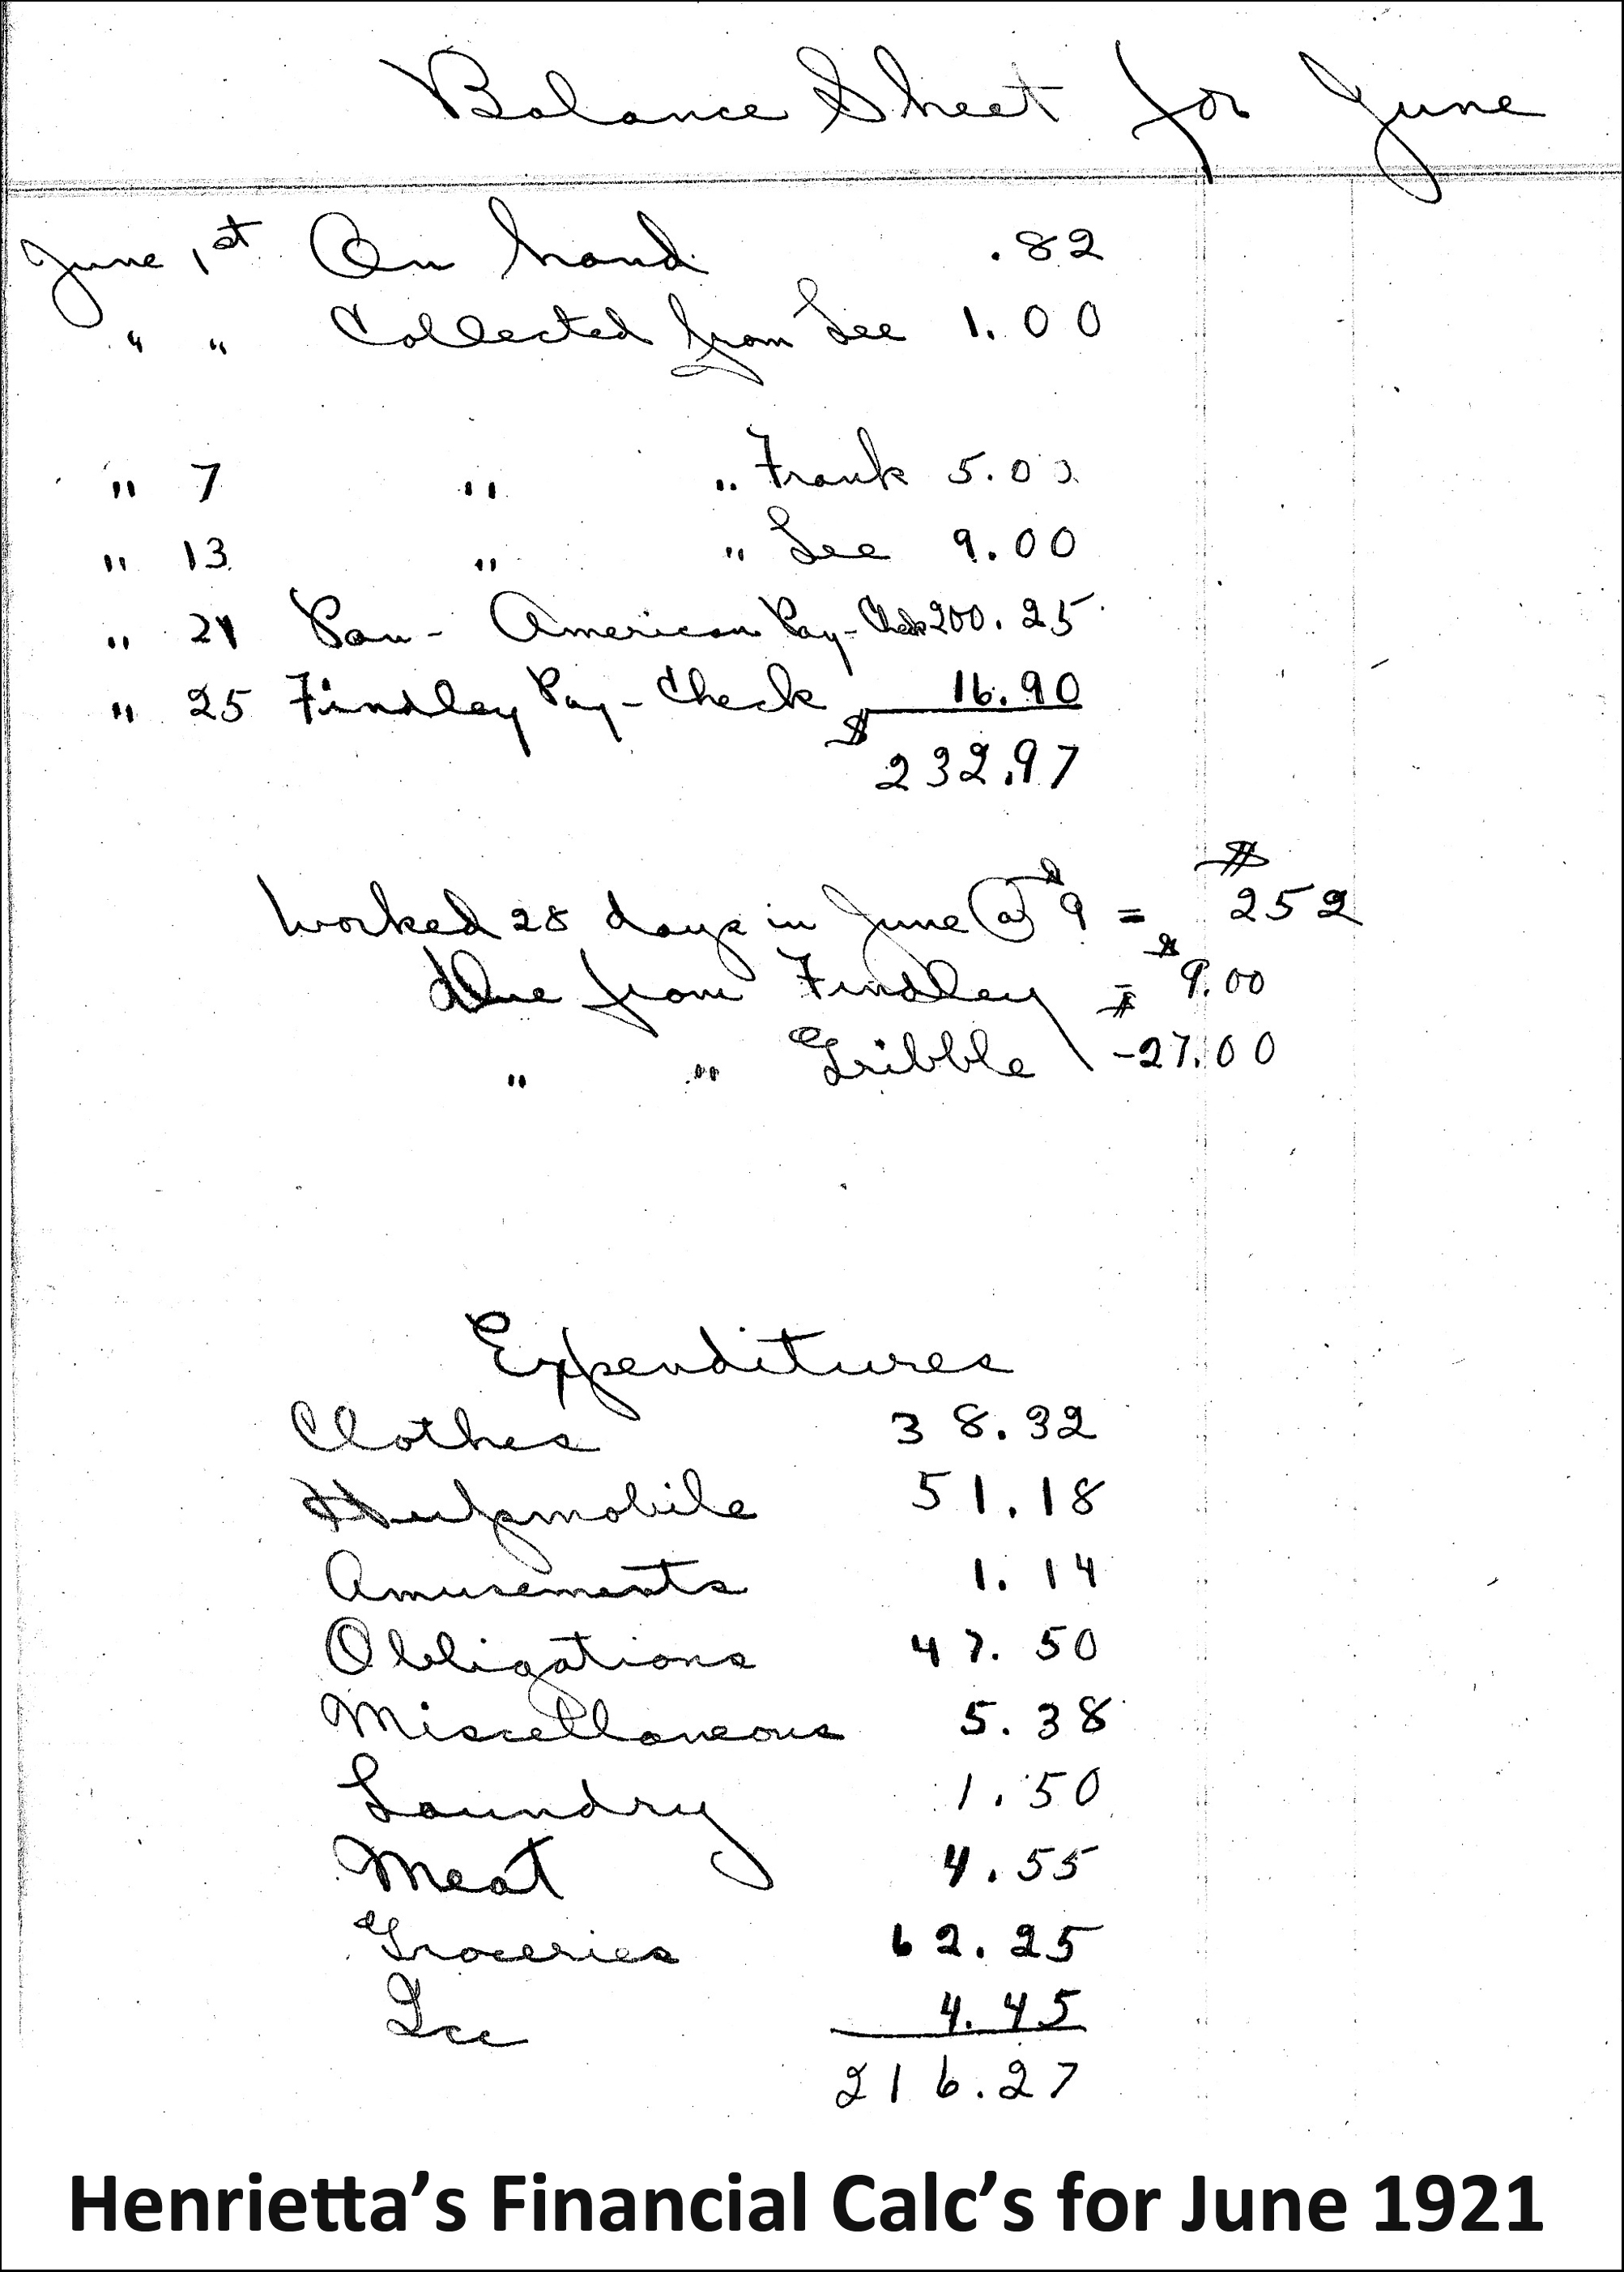 Balance Sheet for June
June 1st On hand .82
" " Collected from Lee 1.00
" 7 " " Frank 5.00
" 13 " " Lee 9.00
" 21 Pan-American Pay-Check 200.25
" 25 Findley Pay-Check 16.90
$ 232.97
Worked 28 days in June @ $9 = $252
Due from Findley = $9.00
" " Gribble $-27.00
Expenditures
Clothes 38.32
Hupmobile 51.18
Amusements 1.14
Obligations 47.50
Miscellaneous 5.38
Laundry 1.50
Meat 4.55
Groceries 62.25
Ice 4.45
216.27
Henrietta’s Financial Calc’s for June 1921